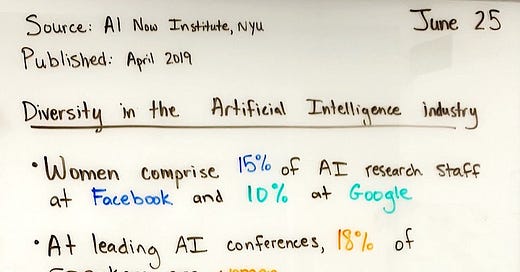 Source: AI Now Institute, NYU
June 25
Published: April 2019
Diversity in the Artificial Intelligence industry
• Women comprise 15% of AI research staff
at Facebook and 10% at Google
• At leading AI conferences, 18% of